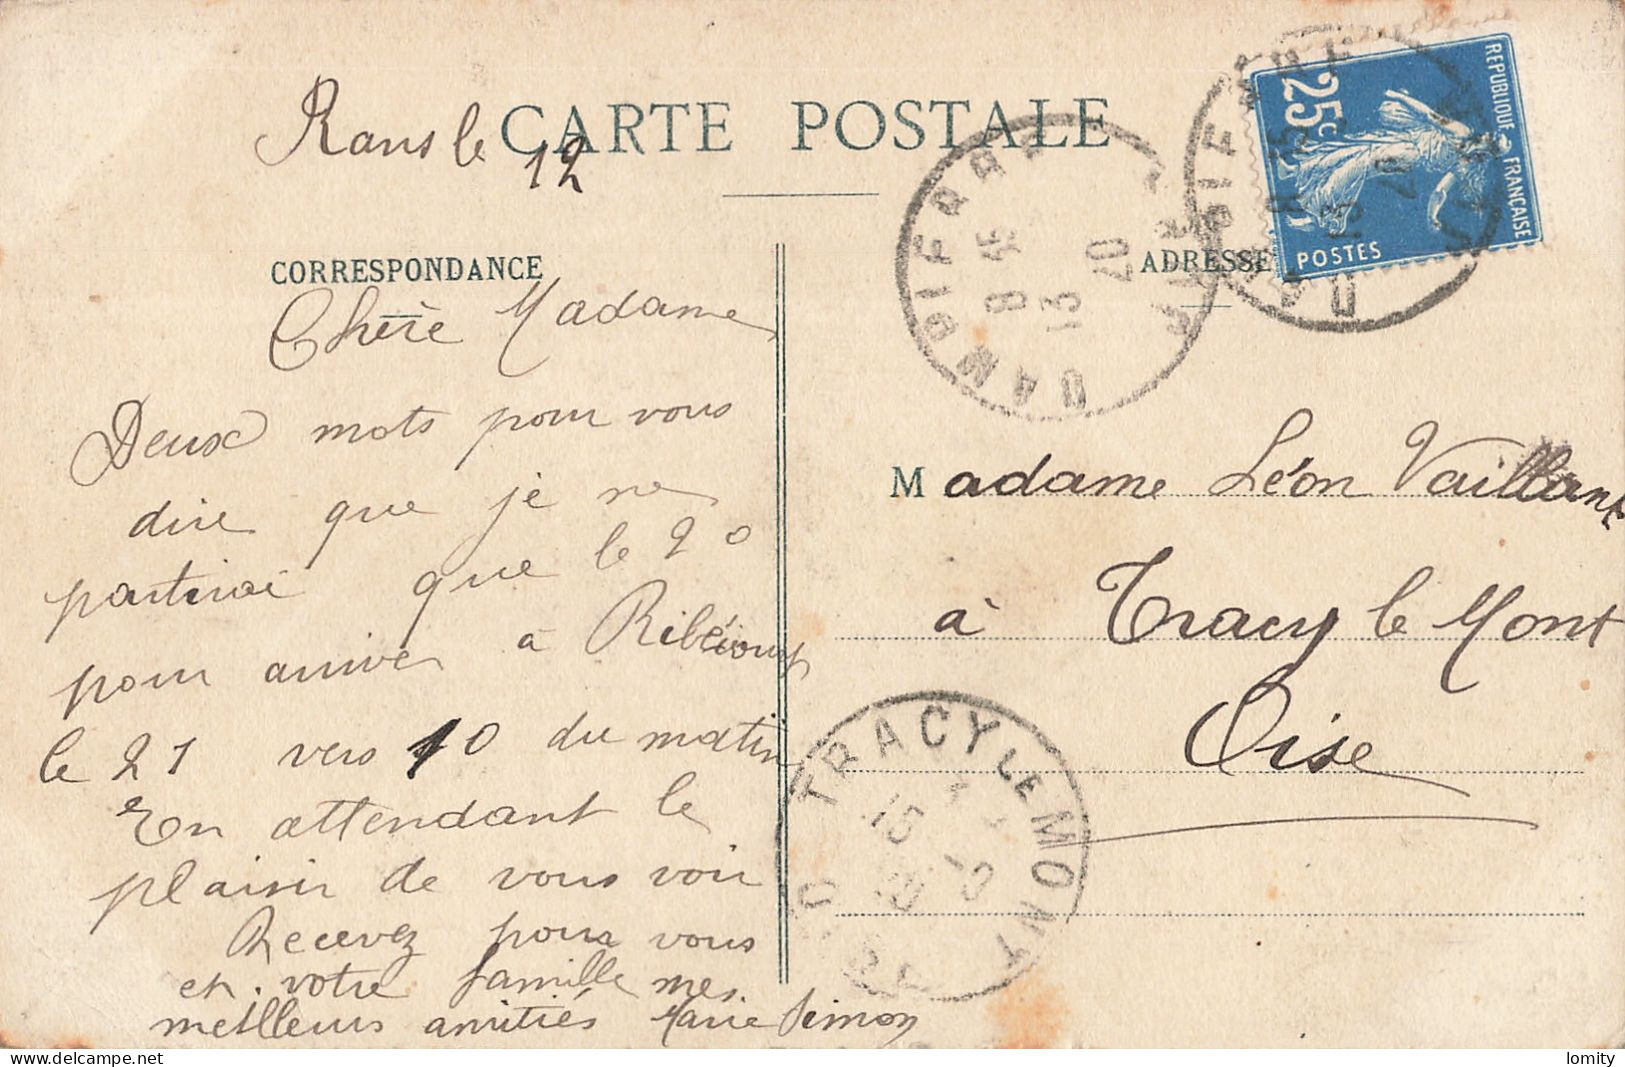 Rans le 12
CARTE POSTALE
CORRESPONDANCE
Chère Madame
Deux mots pour vous
dire que je ne
partirai que le 20
pour arriver à Ribécourt
le 21 vers 10 du matin
En attendant le
plaisir de vous voir
Recevez pour vous
et votre famille mes
meilleurs amitiés Marie Simon
ADRESSE
Madame Léon Vaillant
à Tracy le Mont
Oise
REPUBLIQUE FRANÇAISE
25c
POSTES
DAMPIERRE
8 45
13
07
20
TRACY LE MONT
15
lomity